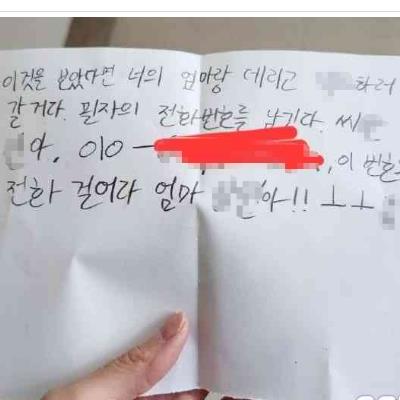 이것을 봤았다면 너의 엄마랑 데리고 하러
갈거다. 필자의 전화번호를 남기다. 씨
아, 010 - , 이 번호
전화 걸어라 엄마 아!! ㅗㅗ